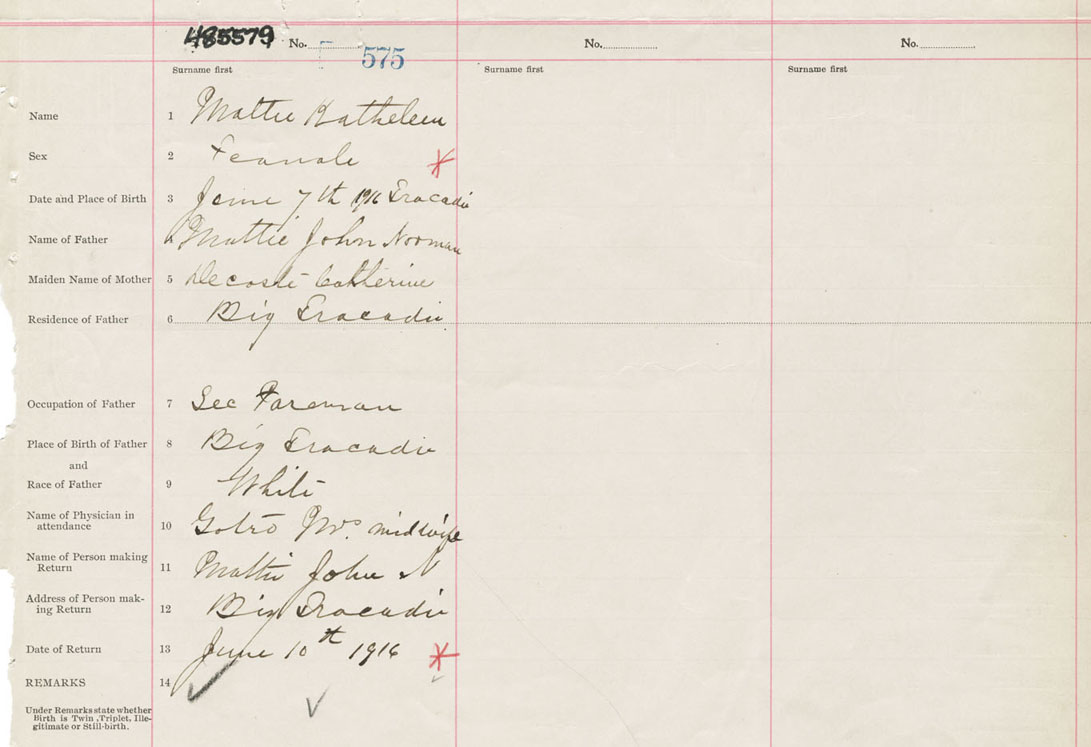 485579 No. 575 No. No.
Surname first Surname first Surname first
Name 1 Mattie Katheleen
Sex 2 Female
Date and Place of Birth 3 June 7th 1916 Tracadie
Name of Father 4 Mattie John Norman
Maiden Name of Mother 5 Decoste Catherine
Residence of Father 6 Big Tracadie
Occupation of Father 7 Sec Foreman
Place of Birth of Father 8 Big Tracadie
and
Race of Father 9 White
Name of Physician in
attendance 10 Gotro Mrs. midwife
Name of Person making
Return 11 Mattie John N
Address of Person mak-
ing Return 12 Big Tracadie
Date of Return 13 June 10th 1916
REMARKS 14
Under Remarks state whether
Birth is Twin, Triplet, Ille-
gitimate or Still-birth.